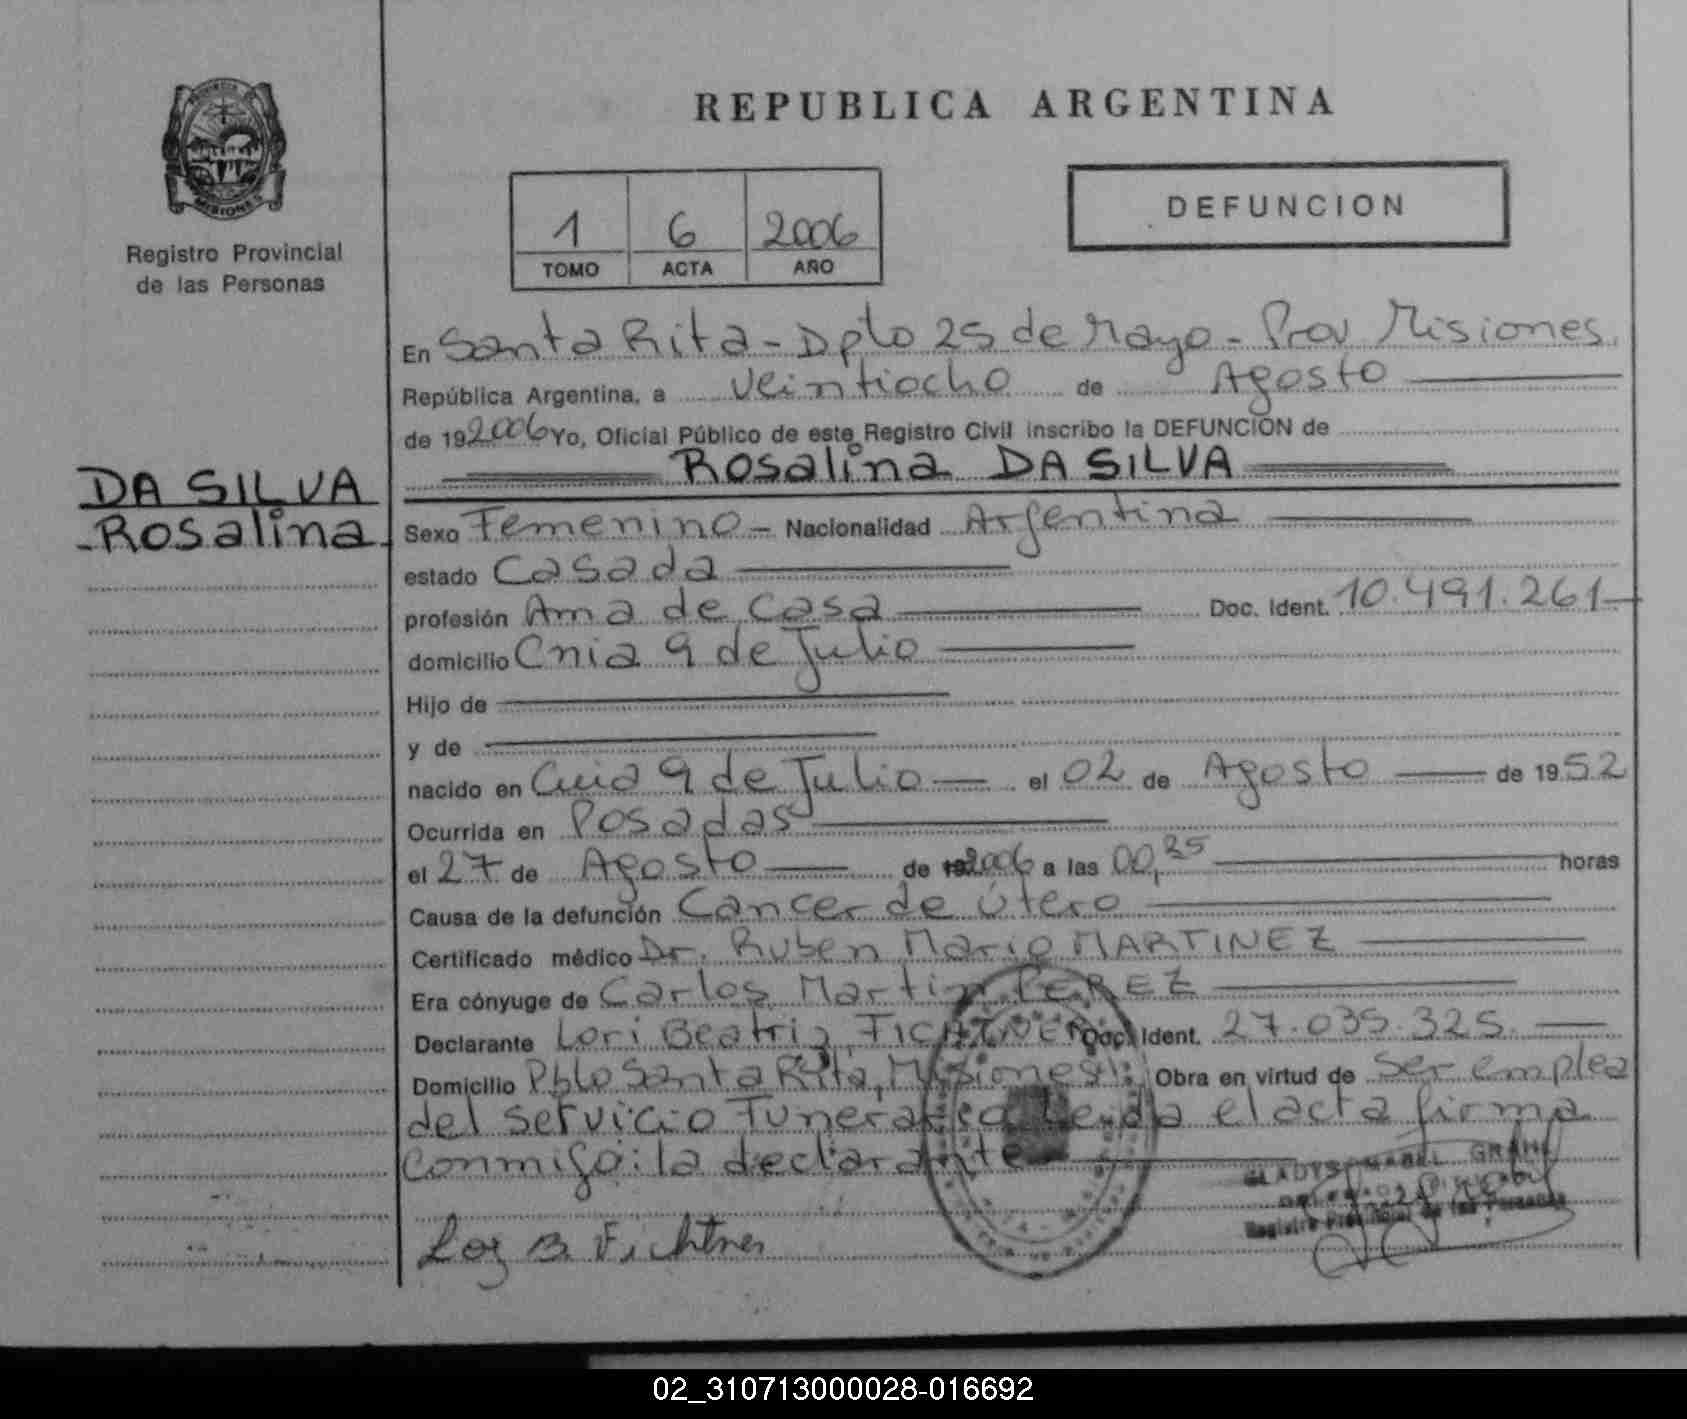 REPUBLICA ARGENTINA
PROVINCIA
MISIONES
Registro Provincial
de las Personas
1 6 2006
TOMO ACTA AÑO
DEFUNCION
En Santa Rita - Dpto 25 de Mayo - Prov Misiones.
República Argentina, a veintiocho de Agosto
de 192006 Yo, Oficial Público de este Registro Civil inscribo la DEFUNCION de
Rosalina DA SILVA
DA SILVA
Rosalina
Sexo Femenino - Nacionalidad Argentina
estado Casada
profesión Ama de Casa Doc. Ident. 10.491.261
domicilio Cnia 9 de Julio
Hijo de
y de
nacido en Cnia 9 de Julio el 02 de Agosto de 1952
Ocurrida en Posadas
el 27 de Agosto de 2006 a las 00,35 horas
Causa de la defunción Cancer de útero
Certificado médico Dr. Ruben Mario MARTINEZ
Era cónyuge de Carlos Martin PEREZ
Declarante Lori Beatriz FICHTNER Doc. Ident. 27.035.325
Domicilio Pblo Santa Rita, Misiones Obra en virtud de ser emplea
del servicio Funerario Leida el acta firma
conmigo: la declarante
GLADYS MABEL
Registro Provincial de las Personas
B. Fichtner
02_310713000028-016692